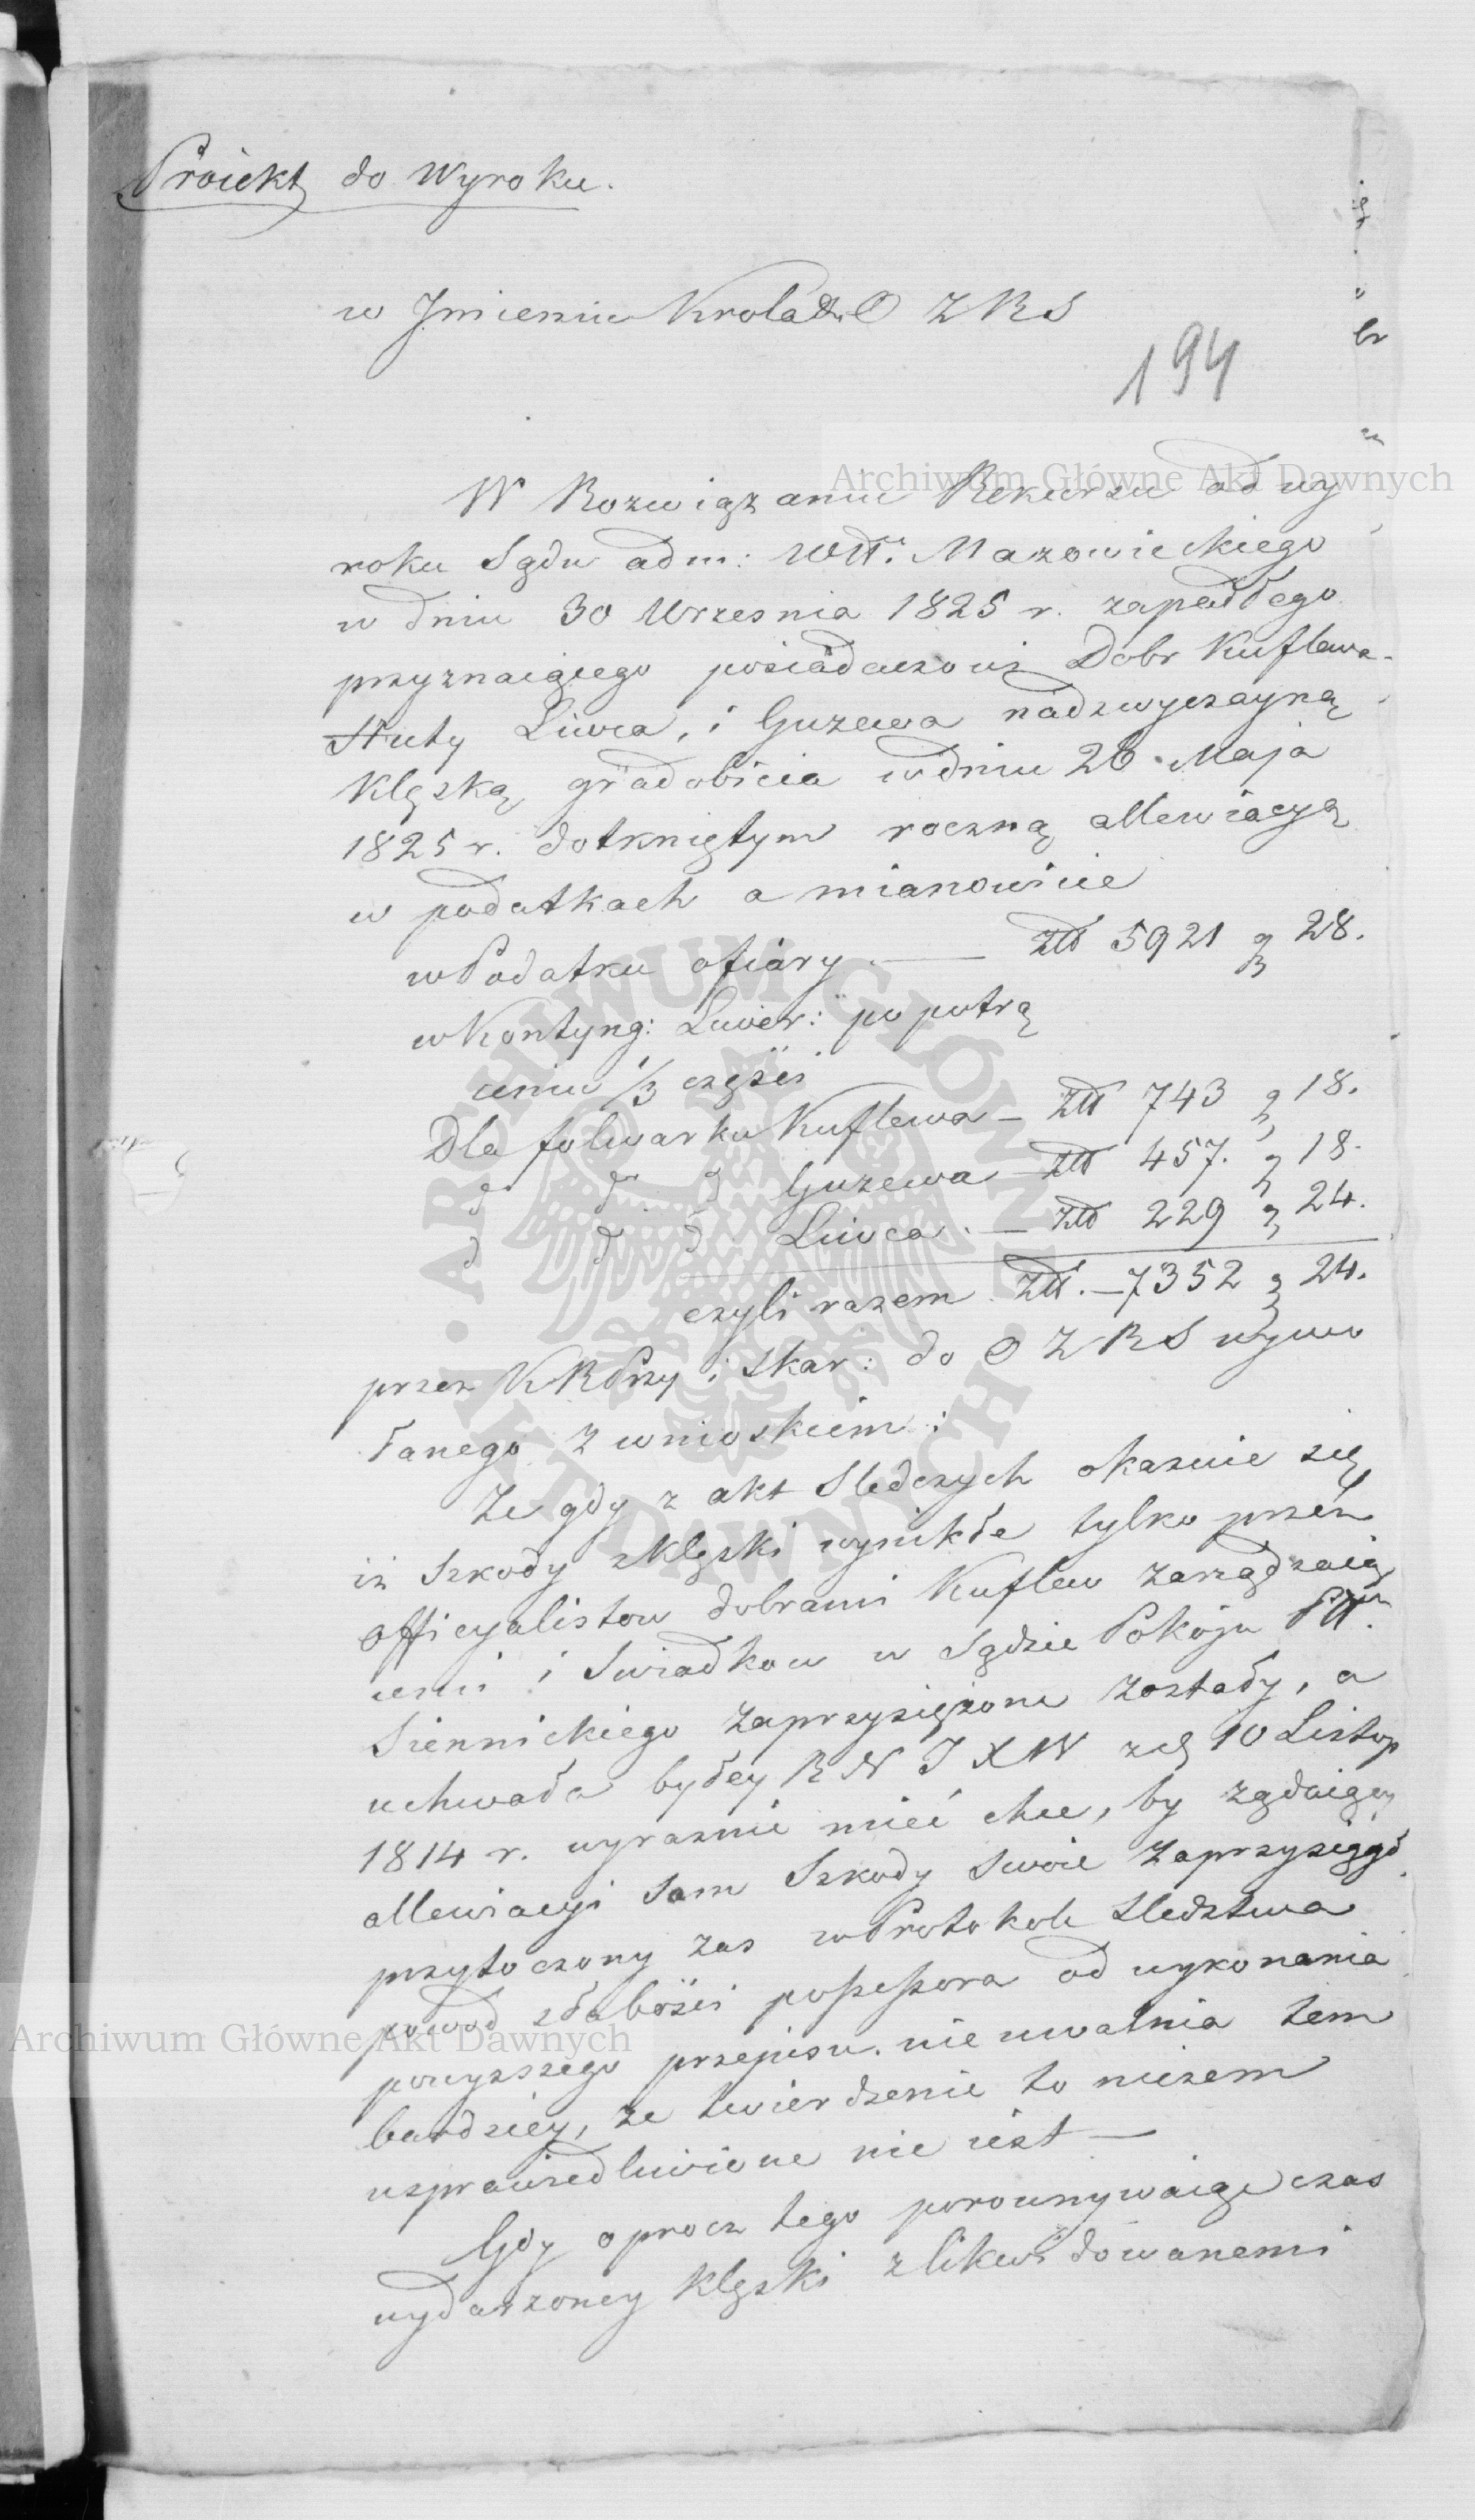 Proiekt do Wyroku.
w Jmieniu Krola &c O Z R S
194
W Rozwiązaniu Rekursu od wy
roku Sądu adm: Wtt. Mazowieckiego
w dniu 30 Wrzesnia 1825 r. zapadłego
przyznaiącego posiadaczowi Dobr Kuflewa
Huty Liwca, i Guzewa nadzwyczayną
Klęską gradobicia w dniu 26 Maja
1825 r. dotkniętym roczną allewiacyą
w podatkach a mianowicie
w Podatku ofiary. — Złł 5921 g 28.
w Kontyng: Liwer: po potrą
ceniu 1/3 częsci
Dla folwarku Kuflewa — Złł 743 g 18.
d d d Guzewa Złł 457. g 18.
d d d Liwca. — Złł 229 g 24.
czyli razem Złł. — 7352 g 24.
przez KRPrzy i Skar: do O Z R S wywo
łanego z wnioskiem:
Ze gdy z akt Sledczych okazuie się
iz Szkody z klęski wynikłe tylko przez
officyalistow dobrami Kuflew zarządzaią
cemi i Swiadkow w Sądzie Pokoju Ptt.
Siennickiego zaprzysiężone zostały, a
uchwała byłey R N J X W z d 10 Listop
1814 r. wyraznie mieć chce, by żądaiący
allewiacyi sam Szkody swoie zaprzysiągł
przytoczony zas w Protokole Sledztwa
powod słabości possessora od wykonania
powyzszego przepisu. nie uwalnia tem
bardziey, ze twierdzenie to niczem
usprawiedliwione nie iest —
Gdy oprocz tego porownywaiąc czas
wydarzoney klęski z likwidowanemi
Archiwum Główne Akt Dawnych
Archiwum Główne Akt Dawnych
ARCHIWUM GŁÓWNE · AKT DAWNYCH ·